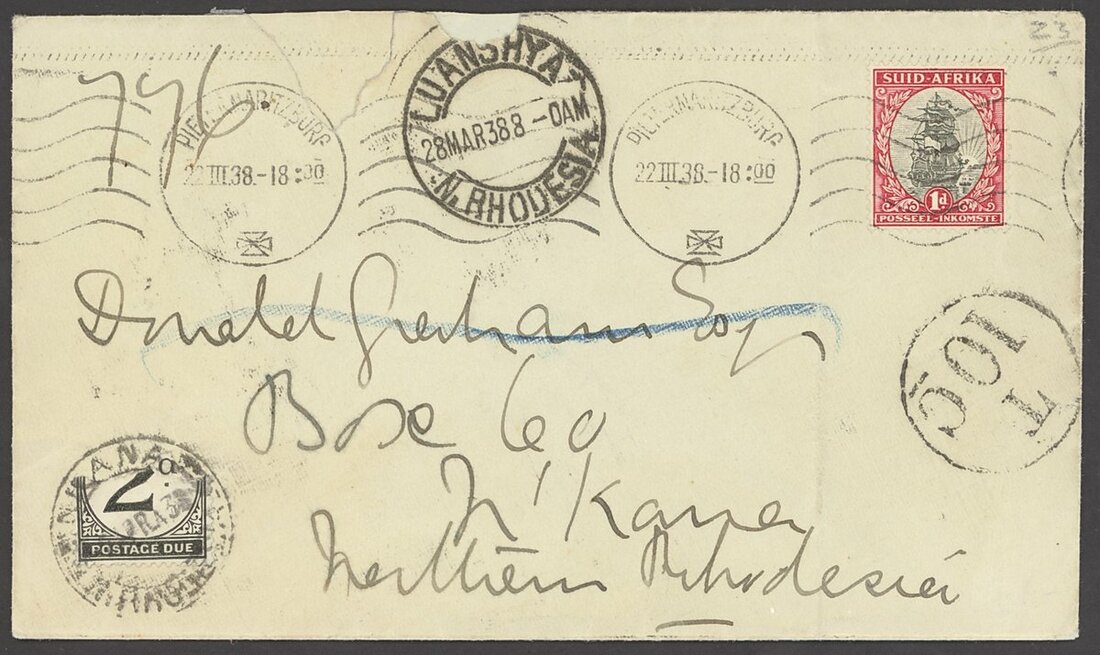 23
SUID-AFRIKA
1d
POSSEEL-INKOMSTE
796
PIETERMARITZBURG
22 III 38.-18:00
LUANSHYA
28 MAR 38 8-0AM
N. RHODESIA
PIETERMARITZBURG
22 III 38.-18:00
Donald Graham Esq
Box 60
N'Kana
Northern Rhodesia
T
10C
NKANA
2d
POSTAGE DUE